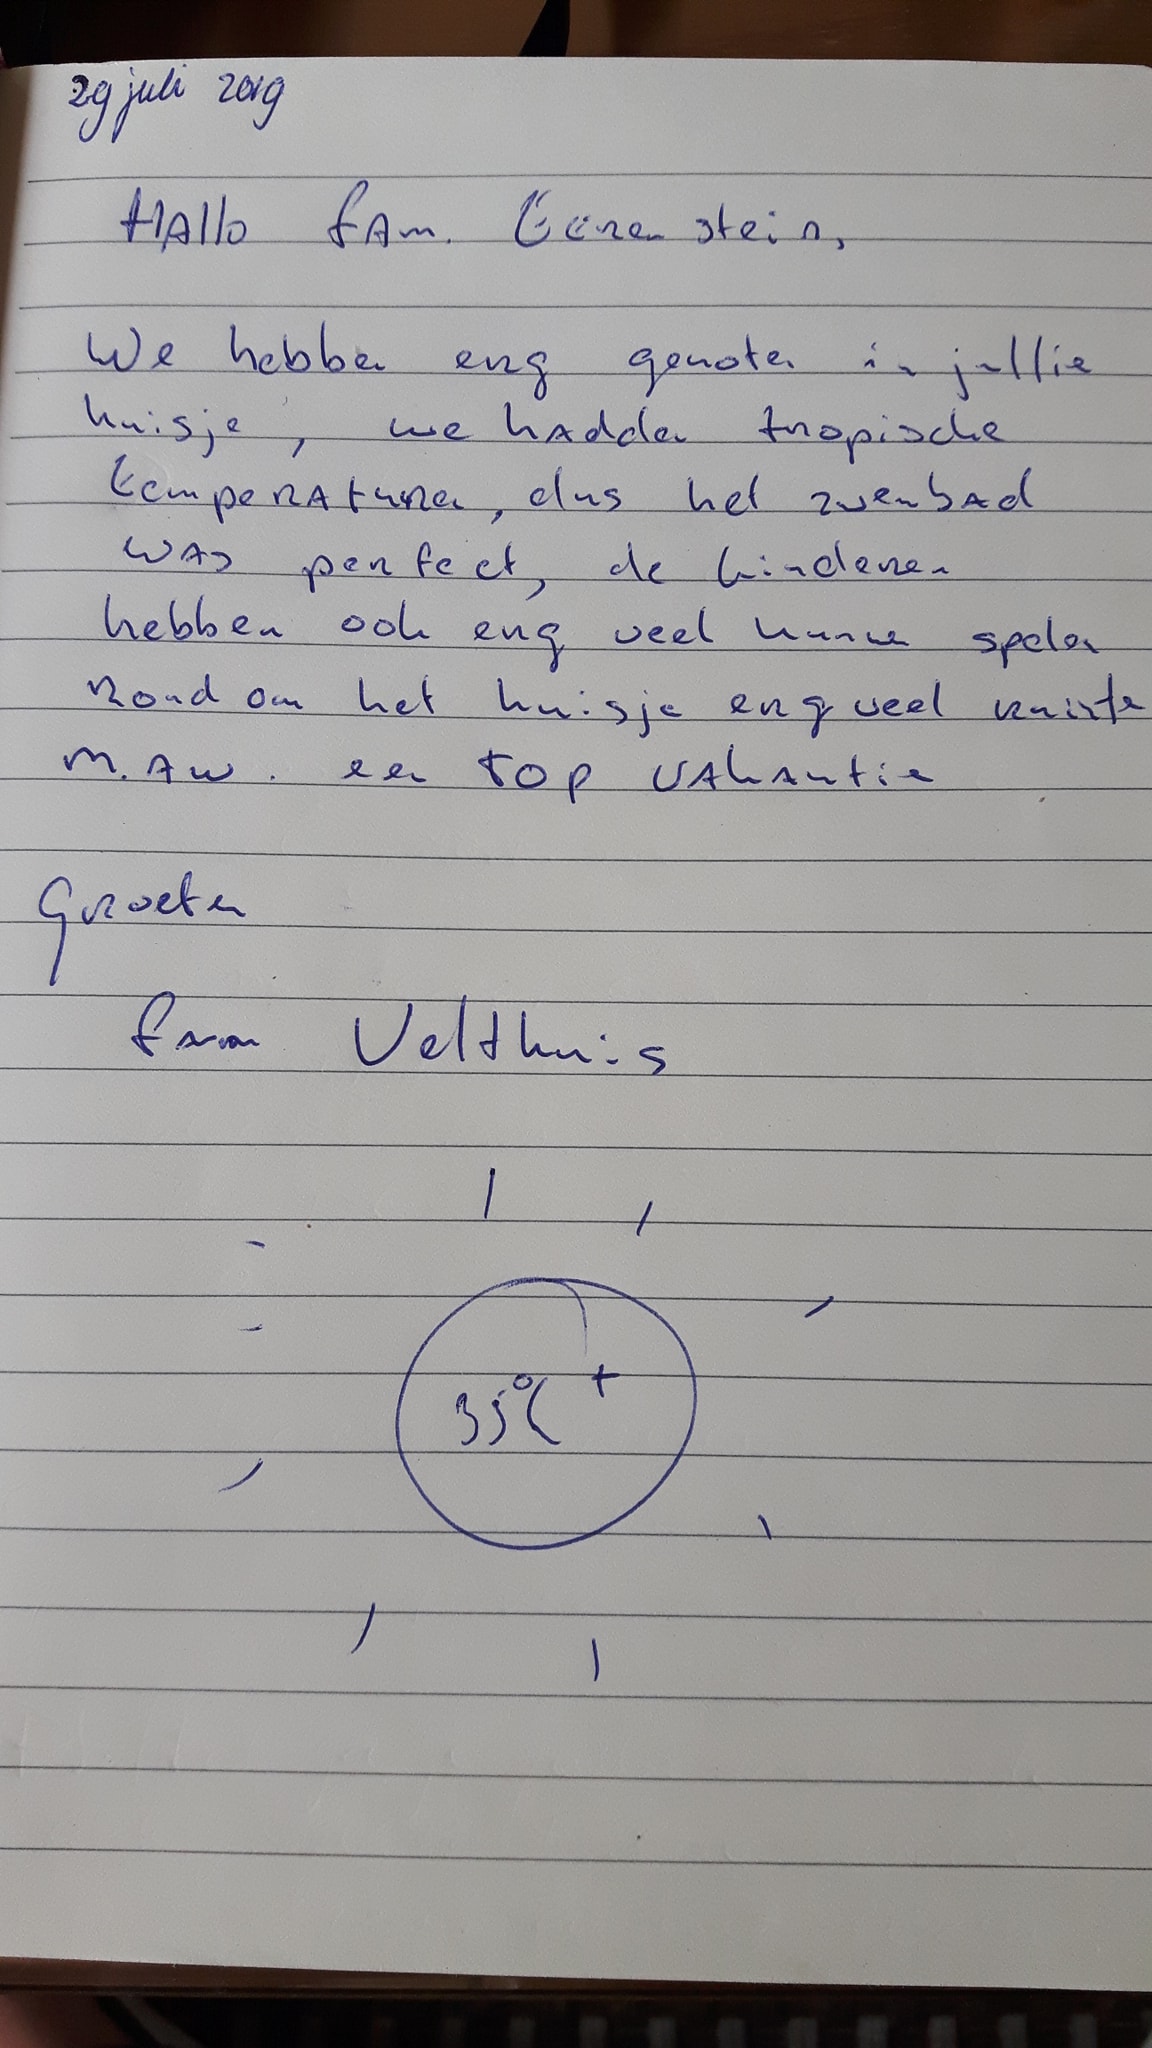 29 juli 2019
Hallo fam.
We hebben erg genoten in jullie
huisje, we hadden tropische
temperaturen, dus het zwembad
was perfect, de kinderen
hebben ook erg veel kunnen spelen
rond om het huisje erg veel ruimte
m.a.w. een top vakantie
Groeten
fam Velthuis
35°C +